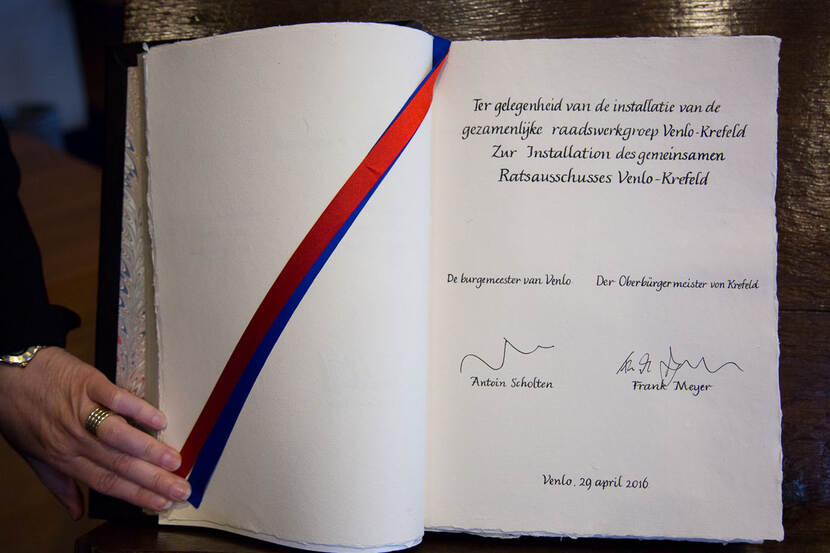 Ter gelegenheid van de installatie van de
gezamenlijke raadswerkgroep Venlo-Krefeld
Zur Installation des gemeinsamen
Ratsausschusses Venlo-Krefeld
De burgemeester van Venlo
Der Oberbürgermeister von Krefeld
Antoin Scholten
Frank Meyer
Venlo, 29 april 2016